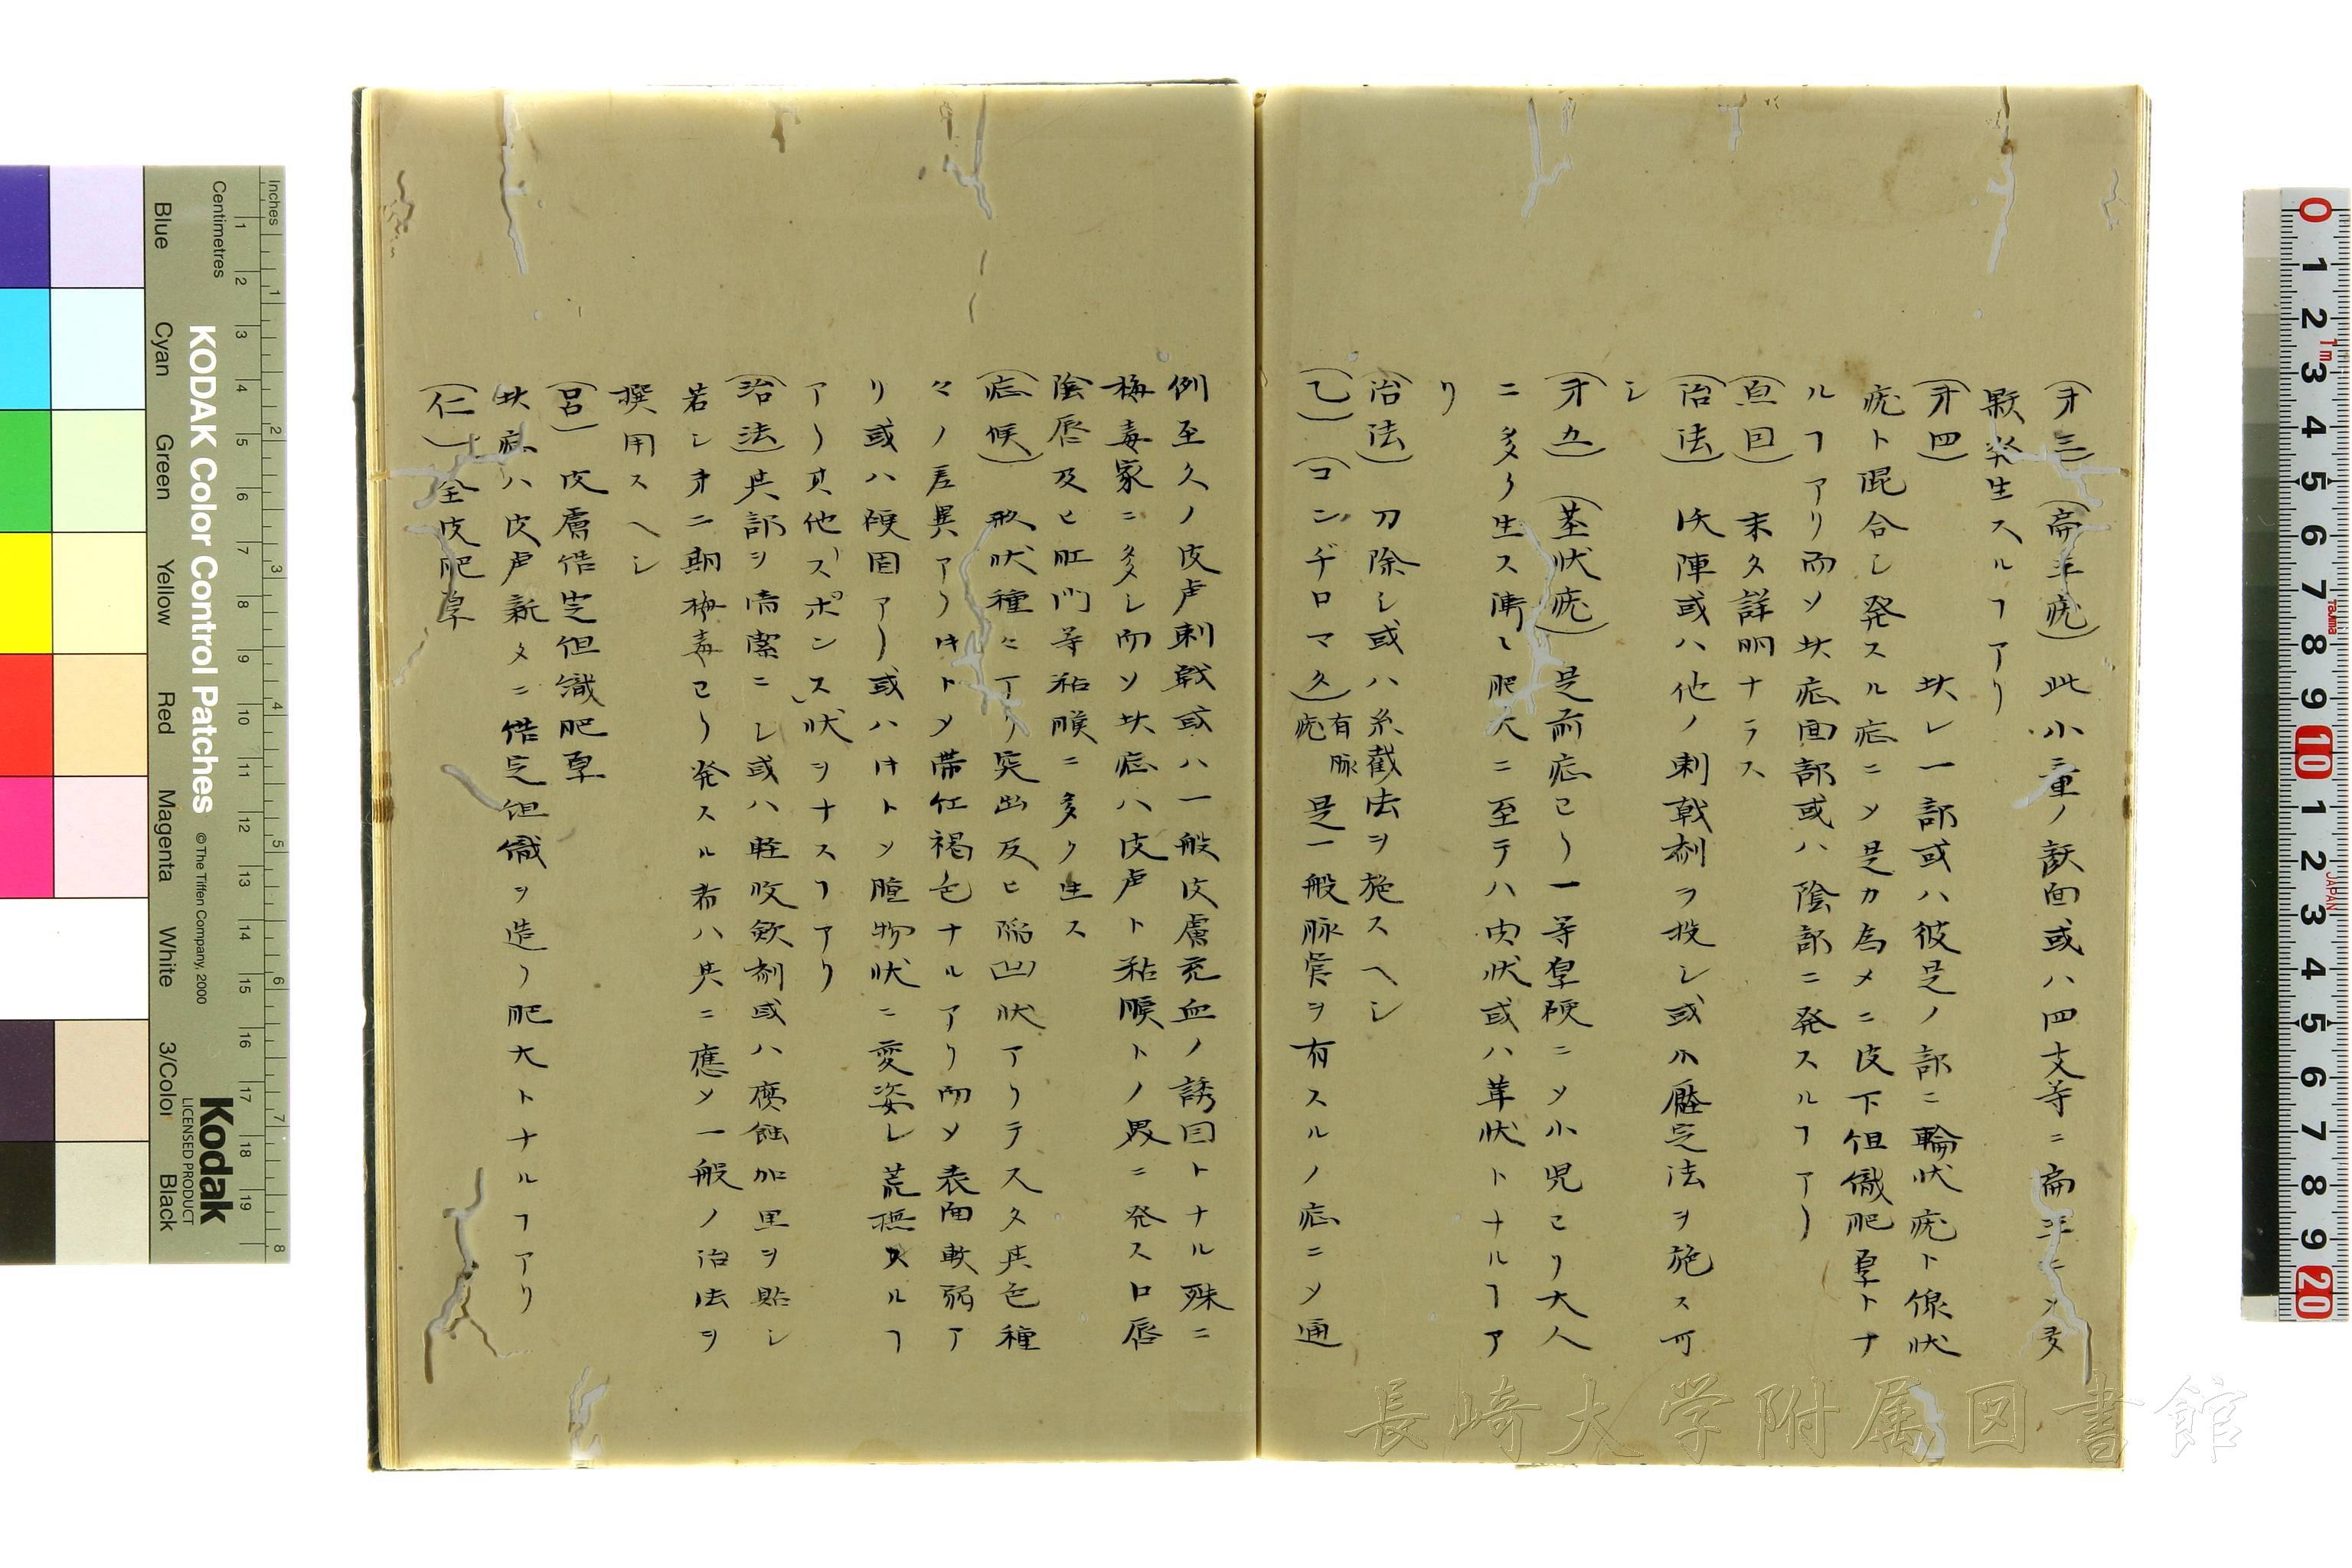 (才三)(扁平疣)此小量ノ皺面或ハ四支等ニ扁平ニ〆多
顆発生スルヿアリ
(才四) 此レ一部或ハ彼是ノ部ニ輪状疣ト線状
疣ト混合シ発スル症ニ〆是カ為メニ皮下但織肥厚トナ
ルヿアリ而ソ此症面部或ハ陰部ニ発スルヿアリ
(原因) 未タ詳明ナラス
(治法) 沃陣或ハ他ノ刺戟剤ヲ投シ或ハ壓定法ヲ施ス可
シ
(才五)(茎状疣)是前症ヨリ一等厚硬ニ〆小児ヨリ大人
ニ多ク生ス漸〻肥大ニ至テハ肉状或ハ茸状トナルヿア
リ
(治法) 刀除シ或ハ糸截法ヲ施スヘシ
(乙)(コンヂロマタ)有脉疣 是一般脉管ヲ有スルノ症ニ〆通
例至久ノ皮膚刺戟或ハ一般皮膚充血ノ誘因トナル殊ニ
梅毒家ニ多シ而ソ此症ハ皮膚ト粘膜トノ界ニ発ス口唇
陰唇及ヒ肛門等粘膜ニ多ク生ス
(症候) 形状種々ニアリ突出及ヒ陥凹状アリテス又其色種
々ノ差異アリ時ト〆帯仁褐色ナルアリ而〆表面軟弱ア
リ或ハ硬固アリ或ハ时ト〆腫物状ニ変姿シ荒撫スルヿ
アリ其他「スポンス」状ヲナスヿアリ
(治法)其部ヲ清潔ニシ或ハ軽収斂剤或ハ腐蝕加里ヲ貼シ
若シ才二期梅毒ヨリ発スル者ハ其ニ應〆一般ノ治法ヲ
撰用スヘシ
(呂) 皮膚偕定但織肥厚
此症ハ皮膚新タニ偕定但織ヲ造リ肥大トナルヿアリ
(仁)全皮肥厚
KODAK Color Control Patches
© The Tiffen Company, 2000
Kodak
LICENSED PRODUCT
Inches
Centimetres
Blue Cyan Green Yellow Red Magenta White 3/Color Black
長崎大学附属図書館